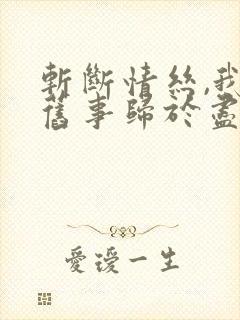 斬斷情絲,我
舊事歸於盡
愛瑷一生